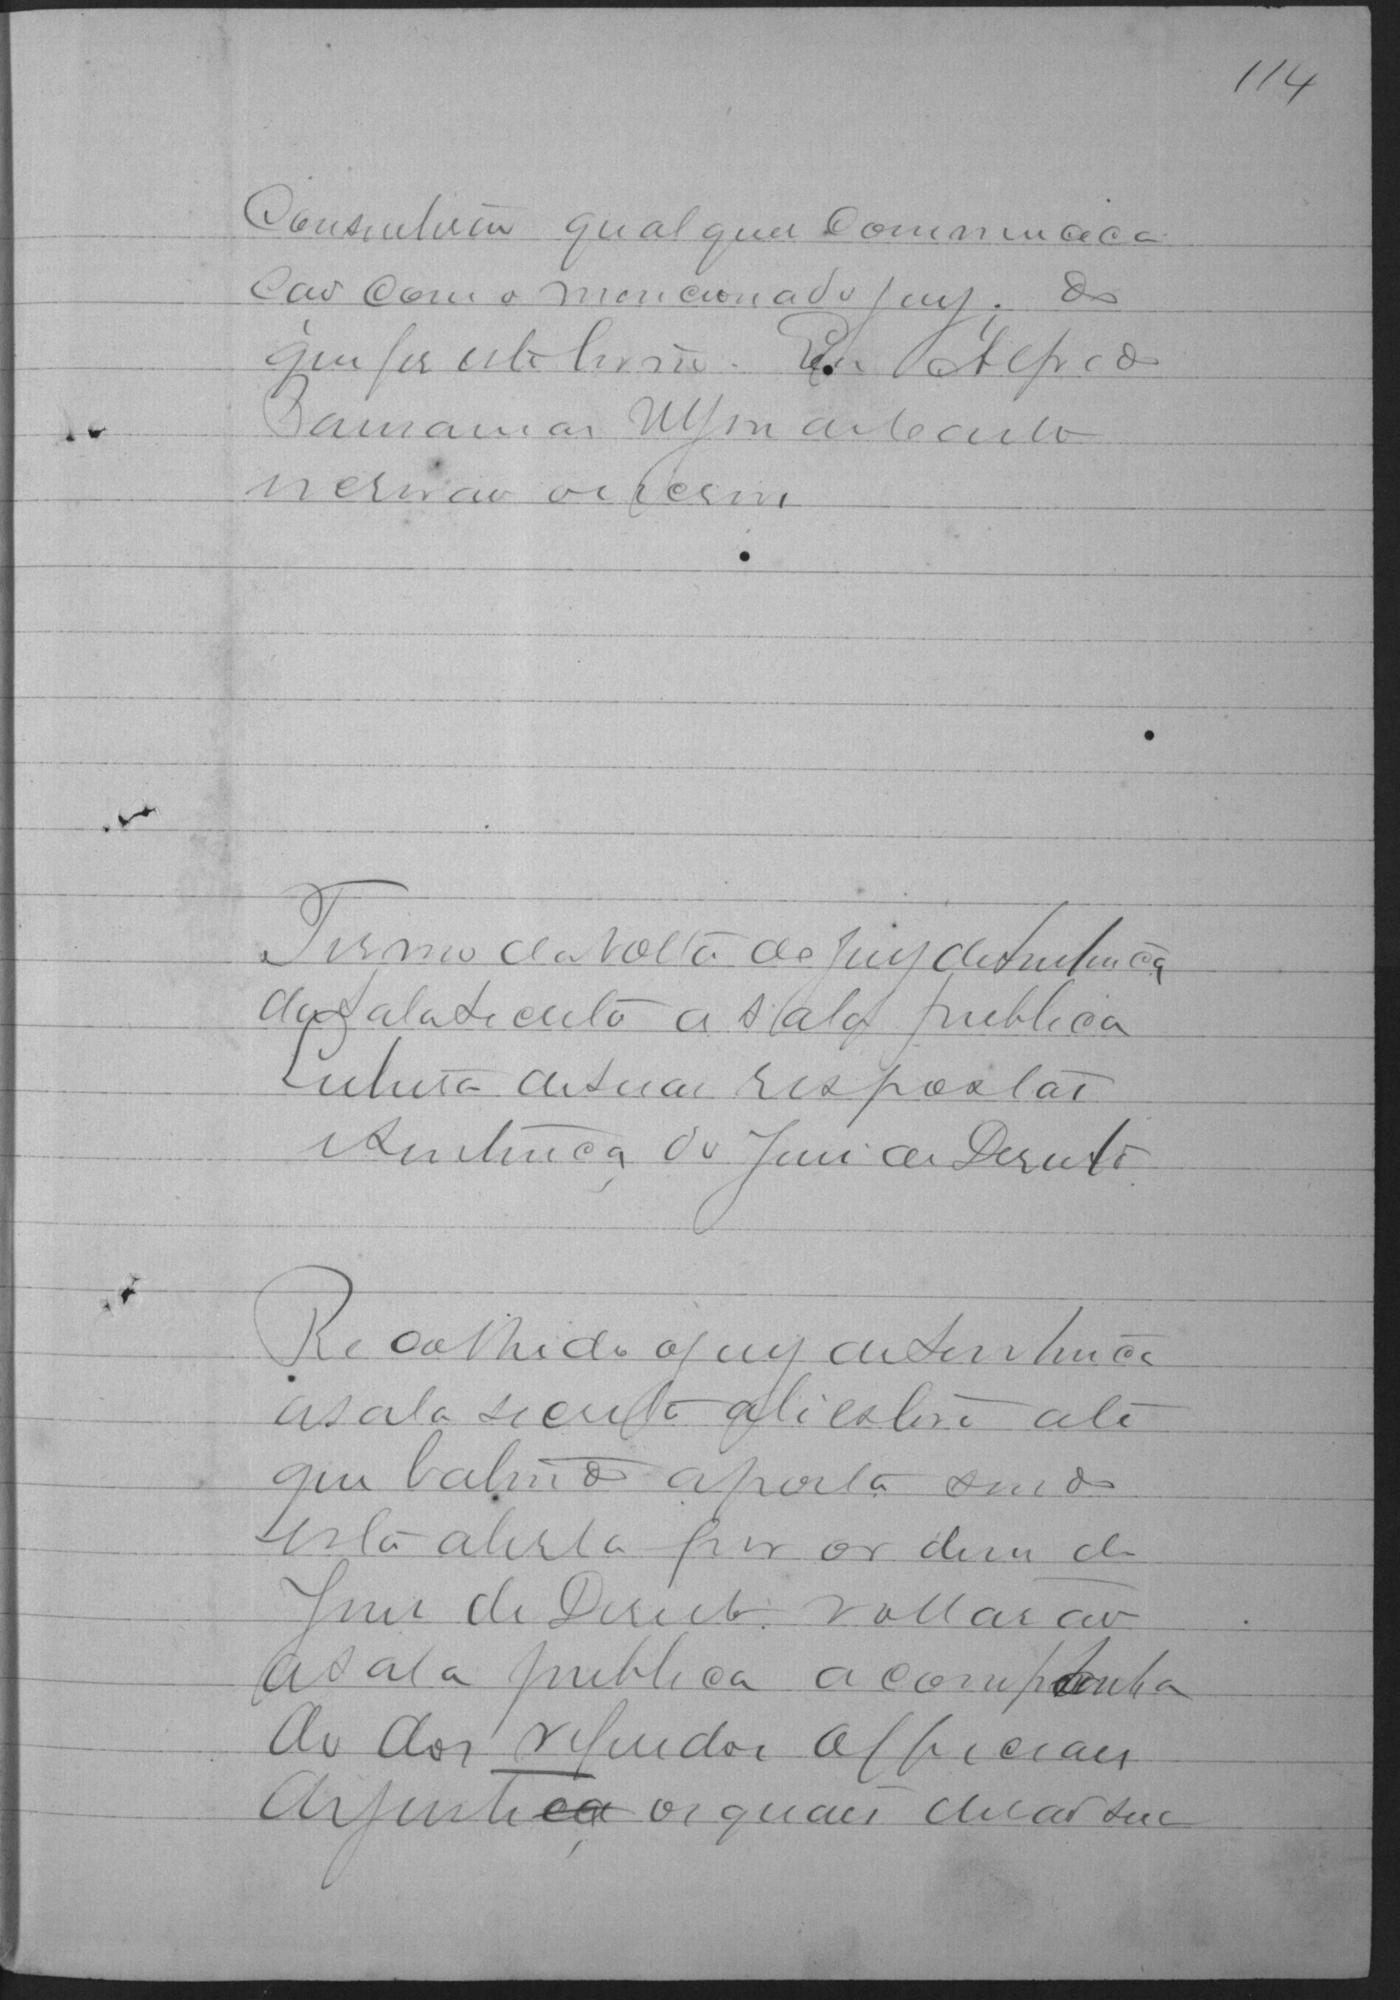 114
Consentirão qualquer communica
cao com o mencionado jury; do
que fis este termo. Eu Alfredo
escrivão o escrevi
Termo da volta do jury de sentença
da sala secreta a sala publica
leitura de suas respostas
e sentença do Juis de Dereito
Recolhido o jury de sentença
a sala secreta ali esteve ate
que batendo a porta sendo
esta aberta por ordem do
Juis de Dereito voltarão
a sala publica acompanha
do dos referidos Officiaes
de justiça os quaes